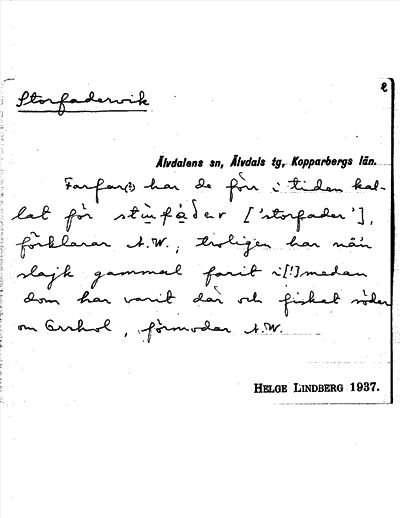 2
Storfadervik
Älvdalens sn, Älvdals tg, Kopparbergs län.
Farfar(!) har de förr i tiden kal-
lat för stùfåder ['storfader'],
förklarar A.W., troligen har nå'n
slajk gammal farit i[!]medan
dom har varit där och fiskat söder
om Grrhol, förmodar A.W.
HELGE LINDBERG 1937.